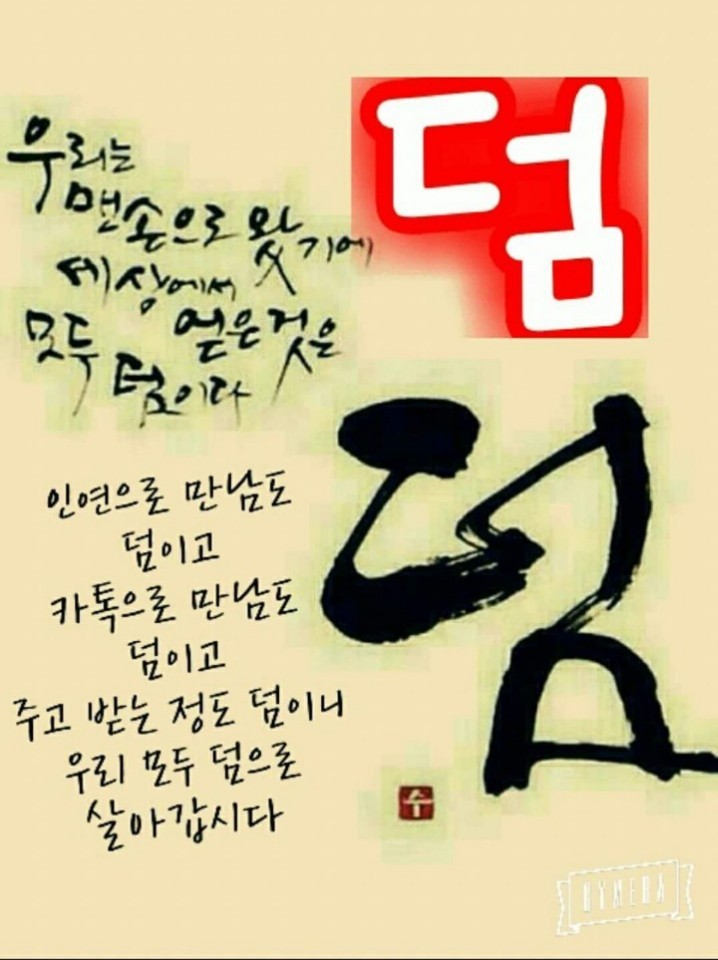 덤
우리는
맨손으로 왔기에
세상에서
모두 얻은것은
덤이다
덤
인연으로 만남도
덤이고
카톡으로 만남도
덤이고
주고 받는 정도 덤이니
우리 모두 덤으로
살아갑시다
수